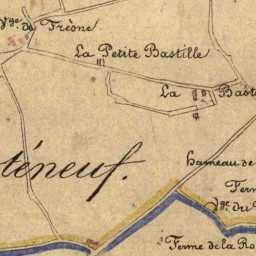 V.ge de Fréone
La Petite Bastille
La Bast
téneuf.
hameau de
Ferm
du
Ferme de la Ro